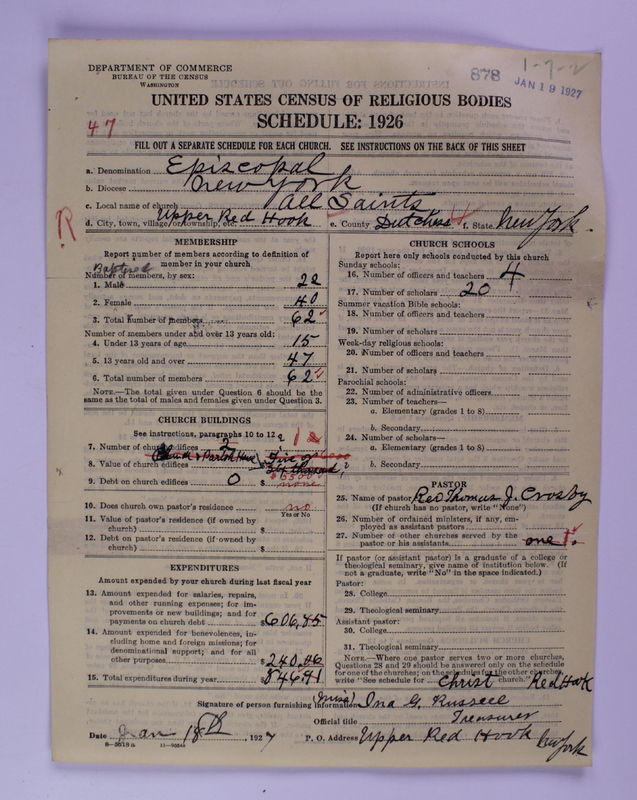 DEPARTMENT OF COMMERCE
BUREAU OF THE CENSUS
WASHINGTON
878
1-7-2
JAN 19 1927
UNITED STATES CENSUS OF RELIGIOUS BODIES
SCHEDULE: 1926
47
FILL OUT A SEPARATE SCHEDULE FOR EACH CHURCH. SEE INSTRUCTIONS ON THE BACK OF THIS SHEET
a. Denomination Episcopal
b. Diocese New York
c. Local name of church All Saints
d. City, town, village, or township, etc. Upper Red Hook e. County Dutchess f. State New York.
R
MEMBERSHIP
Report number of members according to definition of
member in your church
Baptized
Number of members, by sex:
1. Male 22
2. Female 40
3. Total number of members 62
Number of members under and over 13 years old:
4. Under 13 years of age 15
5. 13 years old and over 47
6. Total number of members 62
NOTE.—The total given under Question 6 should be the
same as the total of males and females given under Question 3.
CHURCH BUILDINGS
See instructions, paragraphs 10 to 12
7. Number of church edifices 2 1
8. Value of church edifices
9. Debt on church edifices 0 $ none
10. Does church own pastor's residence no
Yes or No
11. Value of pastor's residence (if owned by
church) $
12. Debt on pastor's residence (if owned by
church) $
EXPENDITURES
Amount expended by your church during last fiscal year
13. Amount expended for salaries, repairs,
and other running expenses; for im-
provements or new buildings; and for
payments on church debt $606.85
14. Amount expended for benevolences, in-
cluding home and foreign missions; for
denominational support; and for all
other purposes $240.06
15. Total expenditures during year $846.91
CHURCH SCHOOLS
Report here only schools conducted by this church
Sunday schools:
16. Number of officers and teachers 4
17. Number of scholars 20
Summer vacation Bible schools:
18. Number of officers and teachers
19. Number of scholars
Week-day religious schools:
20. Number of officers and teachers
21. Number of scholars
Parochial schools:
22. Number of administrative officers
23. Number of teachers—
a. Elementary (grades 1 to 8)
b. Secondary
24. Number of scholars—
a. Elementary (grades 1 to 8)
b. Secondary
PASTOR
25. Name of pastor Rev Thomas J. Crosby
(If church has no pastor, write "None")
26. Number of ordained ministers, if any, em-
ployed as assistant pastors
27. Number of other churches served by the
pastor or his assistants one 1.
If pastor (or assistant pastor) is a graduate of a college or
theological seminary, give name of institution below. (If
not a graduate, write "No" in the space indicated.)
Pastor:
28. College
29. Theological seminary
Assistant pastor:
30. College
31. Theological seminary
NOTE.—Where one pastor serves two or more churches,
Questions 28 and 29 should be answered only on the schedule
for one of the churches; on the schedules for the other churches,
write "See schedule for Christ church." Red Hook
Signature of person furnishing information (Miss) Ina G. Russell
Official title Treasurer
Date Jan 18th, 1927 P. O. Address Upper Red Hook New York
8-5518 a